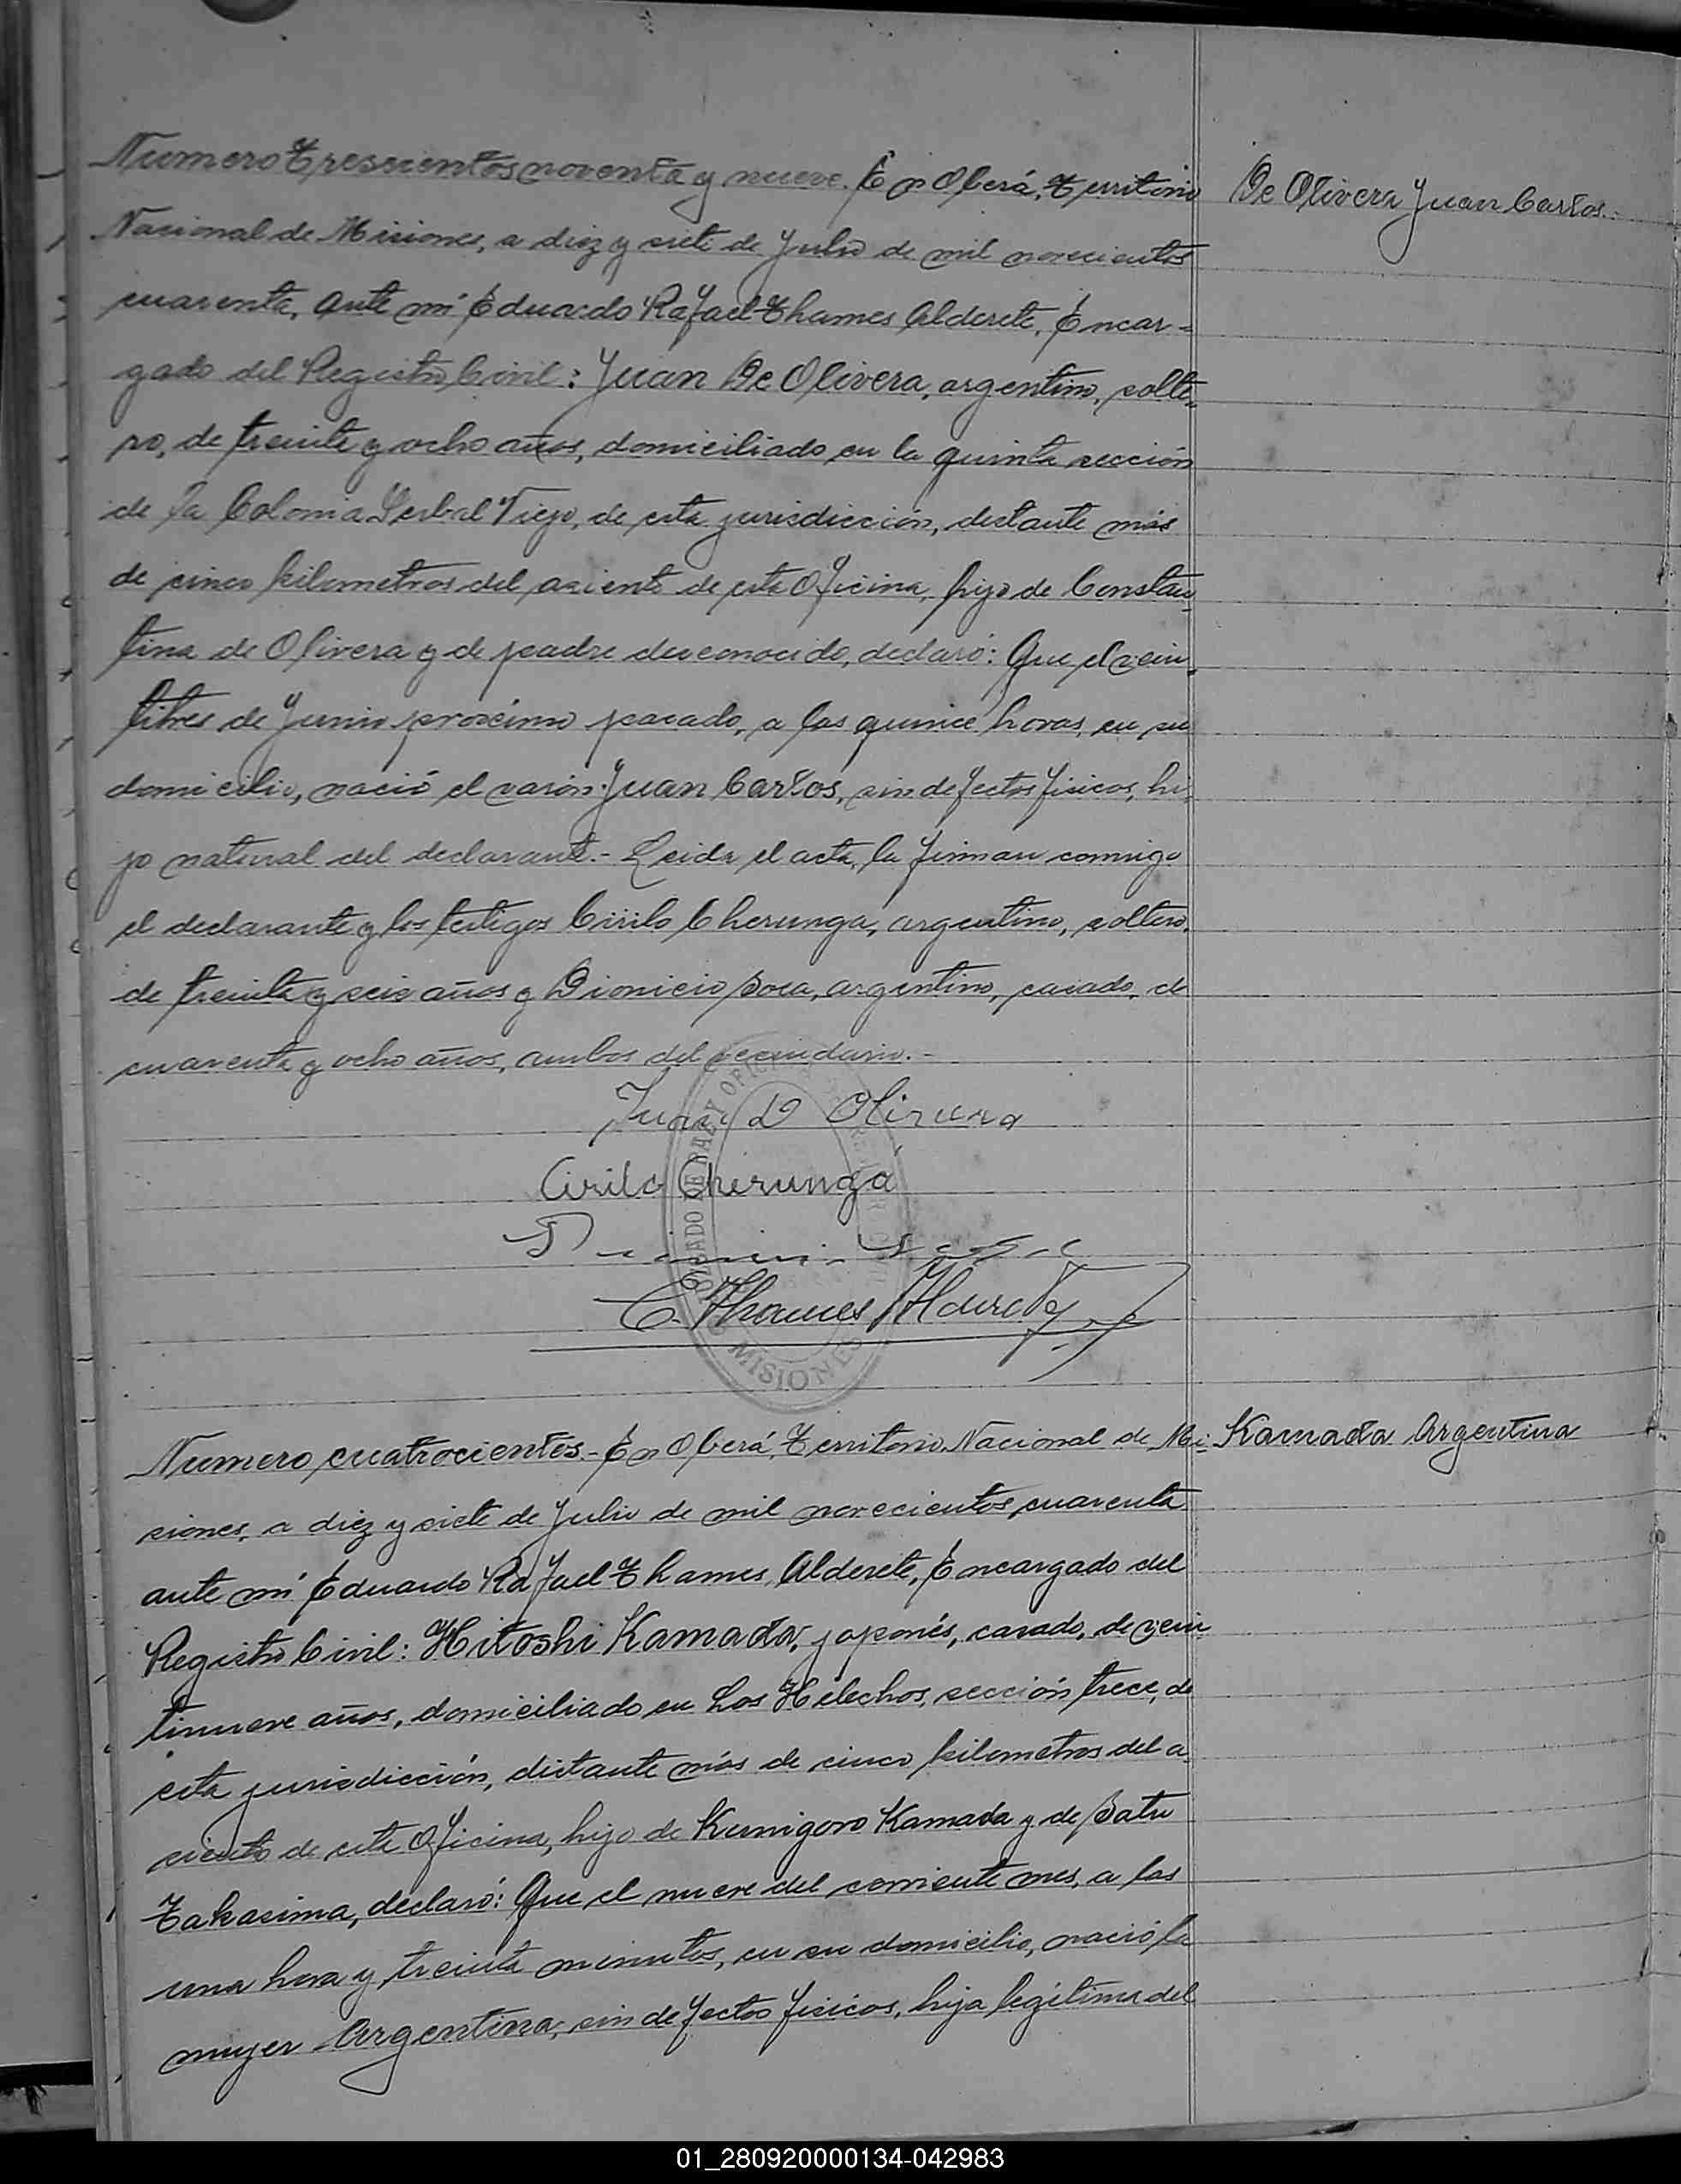 Numero Trescientos noventa y nueve. En Oberá, Territorio
De Olivera Juan Carlos.
Nacional de Misiones, a diez y siete de Julio de mil novecientos
cuarenta, ante mí Eduardo Rafael Thames Alderete, Encar-
gado del Registro Civil: Juan De Olivera, argentino, solte-
ro, de treinta y ocho años, domiciliado en la quinta sección
de la Colonia Yerbal Viejo, de esta jurisdicción, distante más
de cinco kilometros del asiento de esta Oficina, hijo de Constan-
tina de Olivera y de padre desconocido, declaró: Que el vein-
titres de Junio proximo pasado, a las quince horas, en su
domicilio, nació el varón: Juan Carlos, sin defectos fisicos, hi-
jo natural del declarante.- Leida el acta, la firman conmigo
el declarante y los testigos Cirilo Cherunga, argentino, soltero,
de treinta y seis años y Dionicio Sosa, argentino, casado, de
cuarenta y ocho años, ambos del vecindario.-
Juan D Olivera
Cirilo Cherunga
E. Thames Alderete
MISIONES
Numero cuatrocientos.- En Oberá, Territorio Nacional de Mi-
Kamada Argentina
siones, a diez y siete de Julio de mil novecientos cuarenta
ante mí Eduardo Rafael Thames Alderete, Encargado del
Registro Civil: Hitoshi Kamada, japonés, casado, de vein-
tinueve años, domiciliado en Los Helechos, sección trece, de
esta jurisdicción, distante más de cinco kilometros del a-
siento de esta Oficina, hijo de Kunigoro Kamada y de Satu
Takasima, declaró: Que el nueve del corriente mes, a las
una hora y treinta minutos, en su domicilio, nació la
mujer Argentina, sin defectos fisicos, hija legítima del
01_280920000134-042983